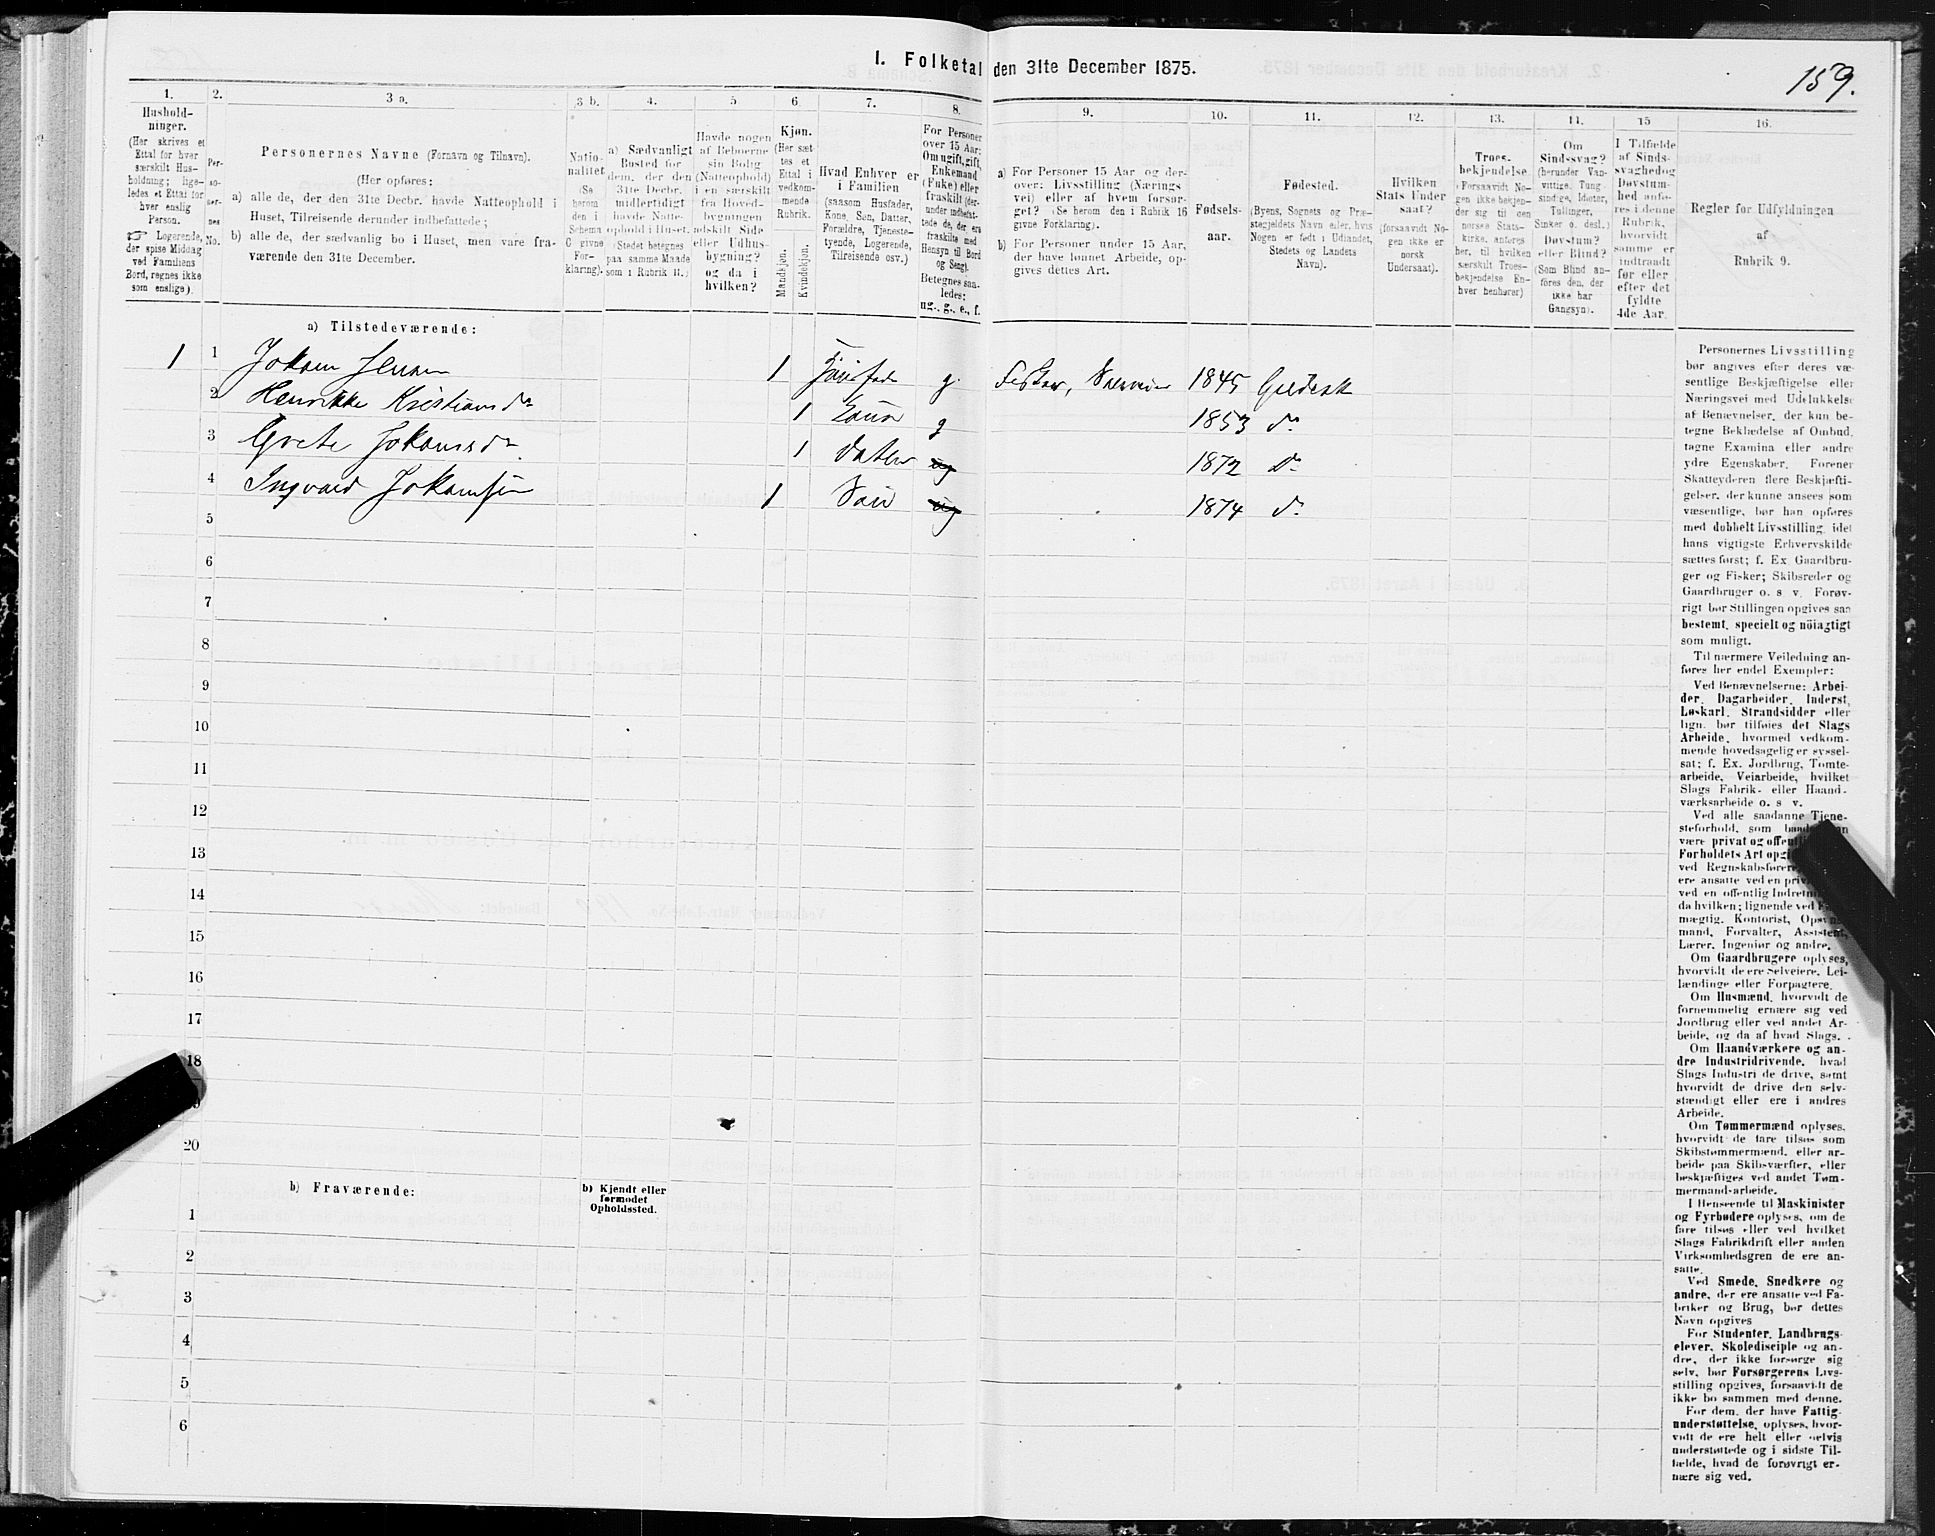 1. Folketal den 31te December 1875.
159.
1.
Hushold-
ninger.
(Her skrives et
Ettal for hver
særskilt Hus-
holdning; lige-
ledes et Ettal for
hver enslig
Person.
☞ Logerende,
der spise Middag
ved Familiens
Bord, regnes ikke
som enslige).
2.
Per-
so-
ner-
nes
No.
3 a.
Personernes Navne (Fornavn og Tilnavn).
(Her opføres:
a) alle de, der den 31te Decbr. havde Natteophold i
Huset, Tilreisende derunder indbefattede;
b) alle de, der sædvanlig bo i Huset, men vare fra-
værende den 31te December.
3 b.
Natio-
nalitet
(Se
herom
den i
Schema
C givne
For-
klaring).
4.
a) Sædvanligt
Bosted for
dem, der den
31te Decbr.
midlertidigt
havde Natte-
ophold i Huset.
(Stedet betegnes
paa samme Maade
som i Rubrik 11.)
5
Havde nogen
af Beboerne
sin Bolig
(Natteophold)
i en særskilt
fra Hoved-
bygningen
adskilt Side
eller Udhus-
bygning?
og da i
hvilken?
6.
Kjøn.
(Her sæt-
tes et
Ettal i
vedkom-
mende
Rubrik.
Mandkjøn.
Kvindekjøn.
7.
Hvad Enhver er
i Familien
(saasom Husfader,
Kone, Søn, Datter,
Forældre, Tjeneste-
tyende, Logerende,
Tilreisende osv.)
8.
For Personer
over 15 Aar:
Om ugift, gift,
Enkemand
(Enke) eller
fraskilt (der-
under indbefat-
tede de, der ere
fraskilte med
Hensyn til Bord
og Seng).
Betegnes saa-
ledes:
ug., g., e., f.
9.
a) For Personer 15 Aar og der-
over: Livsstilling (Nærings
vei) eller af hvem forsør-
get? (Se herom den i Rubrik 16
givne Forklaring).
b) For Personer under 15 Aar,
der have lønnet Arbeide, op-
gives dettes Art.
10.
Fødsels-
aar.
11.
Fødested.
(Byens, Sognets og Præ-
stegjeldets Navn eller, hvis
Nogen er født i Udlandet,
Stedets og Landets
Navn).
12.
Hvilken
Stats Under
saat?
(forsaavidt No-
gen ikke er
norsk
Undersaat).
13.
Troes-
bekjendelse.
(Forsaavidt No-
gen ikke bekjen-
der sig til den
norske Stats-
kirke, anføres
her, til hvilken
særskilt Troes-
bekjendelse En-
hver henhører)
14.
Om
Sindssvag?
(herunder Van-
vittige, Tung-
sindige, Idioter,
Tullinger,
Sinker o. desl.)
Døvstum?
eller Blind?
(Som Blind an-
føres den, der
ikke har
Gangsyn).
15
I Tilfælde
af Sinds-
svaghed og
Døvstum-
hed anfø-
res i denne
Rubrik,
hvorvidt
samme er
indtraadt
før eller
efter det
fyldte
4de Aar.
16.
Regler for Udfyldningen
af
Rubrik 9.
a) Tilstedeværende:
1 1 Johan Jensen 1 g. 1845
2 Henrikke Kristiansdr 1 Kone g 1853 do
3 Grete Johansdr. 1 Datter ug 1872 Do
4 Ingvald Johansen 1 Søn ug 1874 do
5
6
7
8
9
10
11
12
13
14
15
16
17
18
20
b) Fraværende:
b) Kjendt eller
formodet
Opholdssted.
1
2
3
4
5
6
Personernes Livsstilling
bør angives efter deres væ-
sentlige Beskjæftigelse eller
Næringsvei med Udelukkelse
af Benævnelser, der kun be-
tegne Beklædelse af Ombud,
tagne Examina eller andre
ydre Egenskaber. Forener
Skatteyderen flere Beskjæfti-
gelser, der kunne ansees som
væsentlige, bør han opføres
med dobbelt Livsstilling, idet
hans vigtigste Erhvervskilde
sættes først; f. Ex. Gaardbru-
ger og Fisker; Skibsreder og
Gaardbruger o. s v. Forøv-
rigt bør Stillingen opgives saa
bestemt, specielt og nöiagtigt
som muligt.
Til nærmere Veiledning an-
føres her endel Exempler:
Ved Benævnelserne: Arbei-
der, Dagarbeider, Inderst,
Løskarl, Strandsidder eller
lign. bør tilføies det Slags
Arbeide, hvormed vedkom-
mende hovedsagelig er syssel-
sat; f. Ex. Jordbrug, Tomte-
arbeide, Veiarbeide, hvilket
Slags Fabrik- eller Haand-
værksarbeide o. s v.
Ved alle saadanne Tjene-
steforhold, som
være privat og
Forholdets Art
ved
ere ansatte ved en
ved en offentlig
da hvilken; lignende ved
mægtig, Kontorist,
mand, Forvalter, Assistent,
Lærer, Ingeniør og andre.
Om Gaardbrugere oplyses,
hvorvidt de ere Selveiere, Lei-
lændinge eller Forpagtere.
Om Husmænd, hvorvidt de
fornemmelig ernære sig ved
Jordbrug eller ved andet Ar-
beide, og da af hvad Slags.
Om Haandværkere og an-
dre Industridrivende, hvad
Slags Industri de drive, samt
hvorvidt de drive den selv-
stændigt eller ere i andres
Arbeide.
Om Tømmermænd oplyses,
hvorvidt de fare tilsøs som
Skibstømmermænd, eller ar-
beide paa Skibsværfter, eller
beskjæftiges ved andet Tøm-
mermand-arbeide.
I Henseende til Maskinister
og Fyrbødere oplyses, om de
fare tilsøs eller ved hvilket
Slags Fabrikdrift eller anden
Virksomhedsgren de ere an-
satte.
Ved Smede, Snedkere og
andre, der ere ansatte ved Fa-
briker og Brug, bør dettes
Navn opgives
For Studenter, Landbrugs-
elever, Skoledisciple og an-
dre, der ikke forsørge sig
selv, bør Forsørgerens Livs-
stilling opgives, forsaavidt de
ikke bo sammen med denne.
For dem, der have Fattig-
understøttelse, oplyses, hvor-
vidt de ere helt eller delvis
understøttede og i sidste Til-
fælde, hvad de forøvrigt er-
nære sig ved.